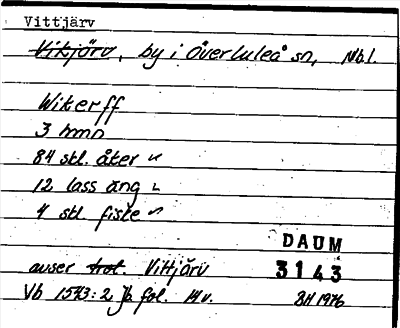 Vittjärv
Vikjörv, by i Överluleå sn, Nb.l.
Wikerff
3 hmn
84 skl. åker
12 lass äng
4 skl. fiske
DAUM
avser trol. Vittjärv 3143
Vb 1543:2 Jb fol. 14 v. BH 1976